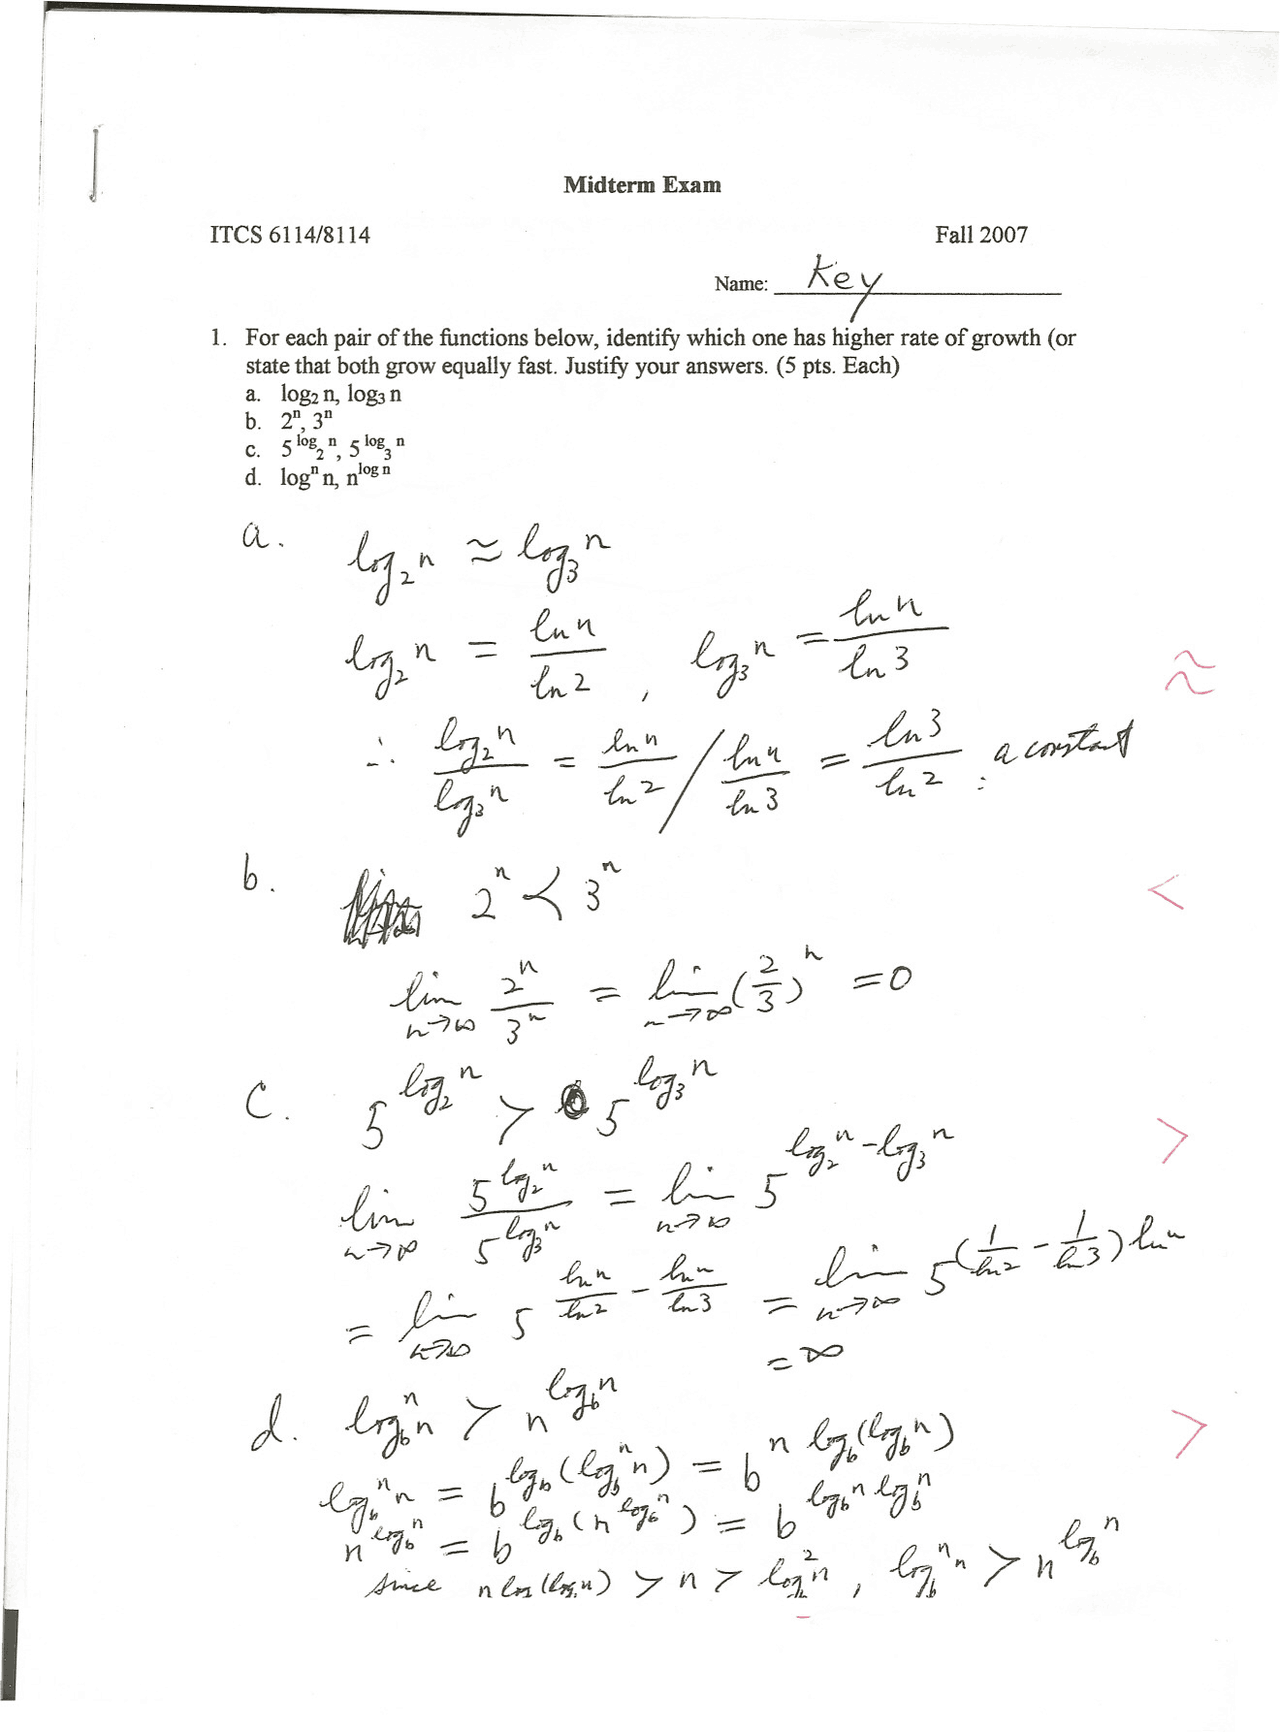 Midterm Exam
ITCS 6114/8114 Fall 2007
Name: Key
1. For each pair of the functions below, identify which one has higher rate of growth (or
state that both grow equally fast. Justify your answers. (5 pts. Each)
a. log₂ n, log₃ n
b. 2ⁿ, 3ⁿ
c. 5^(log₂ n), 5^(log₃ n)
d. logⁿ n, n^(log n)
a. log₂ n ≈ log₃ n
log₂ n = ln n / ln 2 , log₃ n = ln n / ln 3
≈
∴ log₂ n / log₃ n = (ln n / ln 2) / (ln n / ln 3) = ln 3 / ln 2 : a constant
b. 2ⁿ < 3ⁿ <
lim n→∞ 2ⁿ / 3ⁿ = lim n→∞ (2/3)ⁿ = 0
c. 5^(log₂ n) > 5^(log₃ n) >
lim n→∞ 5^(log₂ n) / 5^(log₃ n) = lim n→∞ 5^(log₂ n − log₃ n)
= lim n→∞ 5^(ln n / ln 2 − ln n / ln 3) = lim n→∞ 5^((1/ln 2 − 1/ln 3) ln n)
= ∞
d. log_bⁿ n > n^(log_b n) >
log_bⁿ n = b^(log_b (log_bⁿ n)) = b^(n log_b (log_b n))
n^(log_b n) = b^(log_b (n^(log_b n))) = b^(log_b n log_b n)
since n log (log n) > n > log_b² n , log_bⁿ n > n^(log_b n)